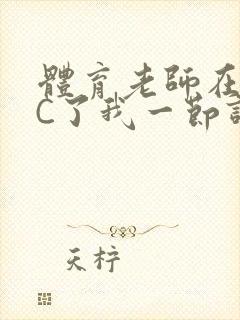 體育老師在
C了我一節
天梓